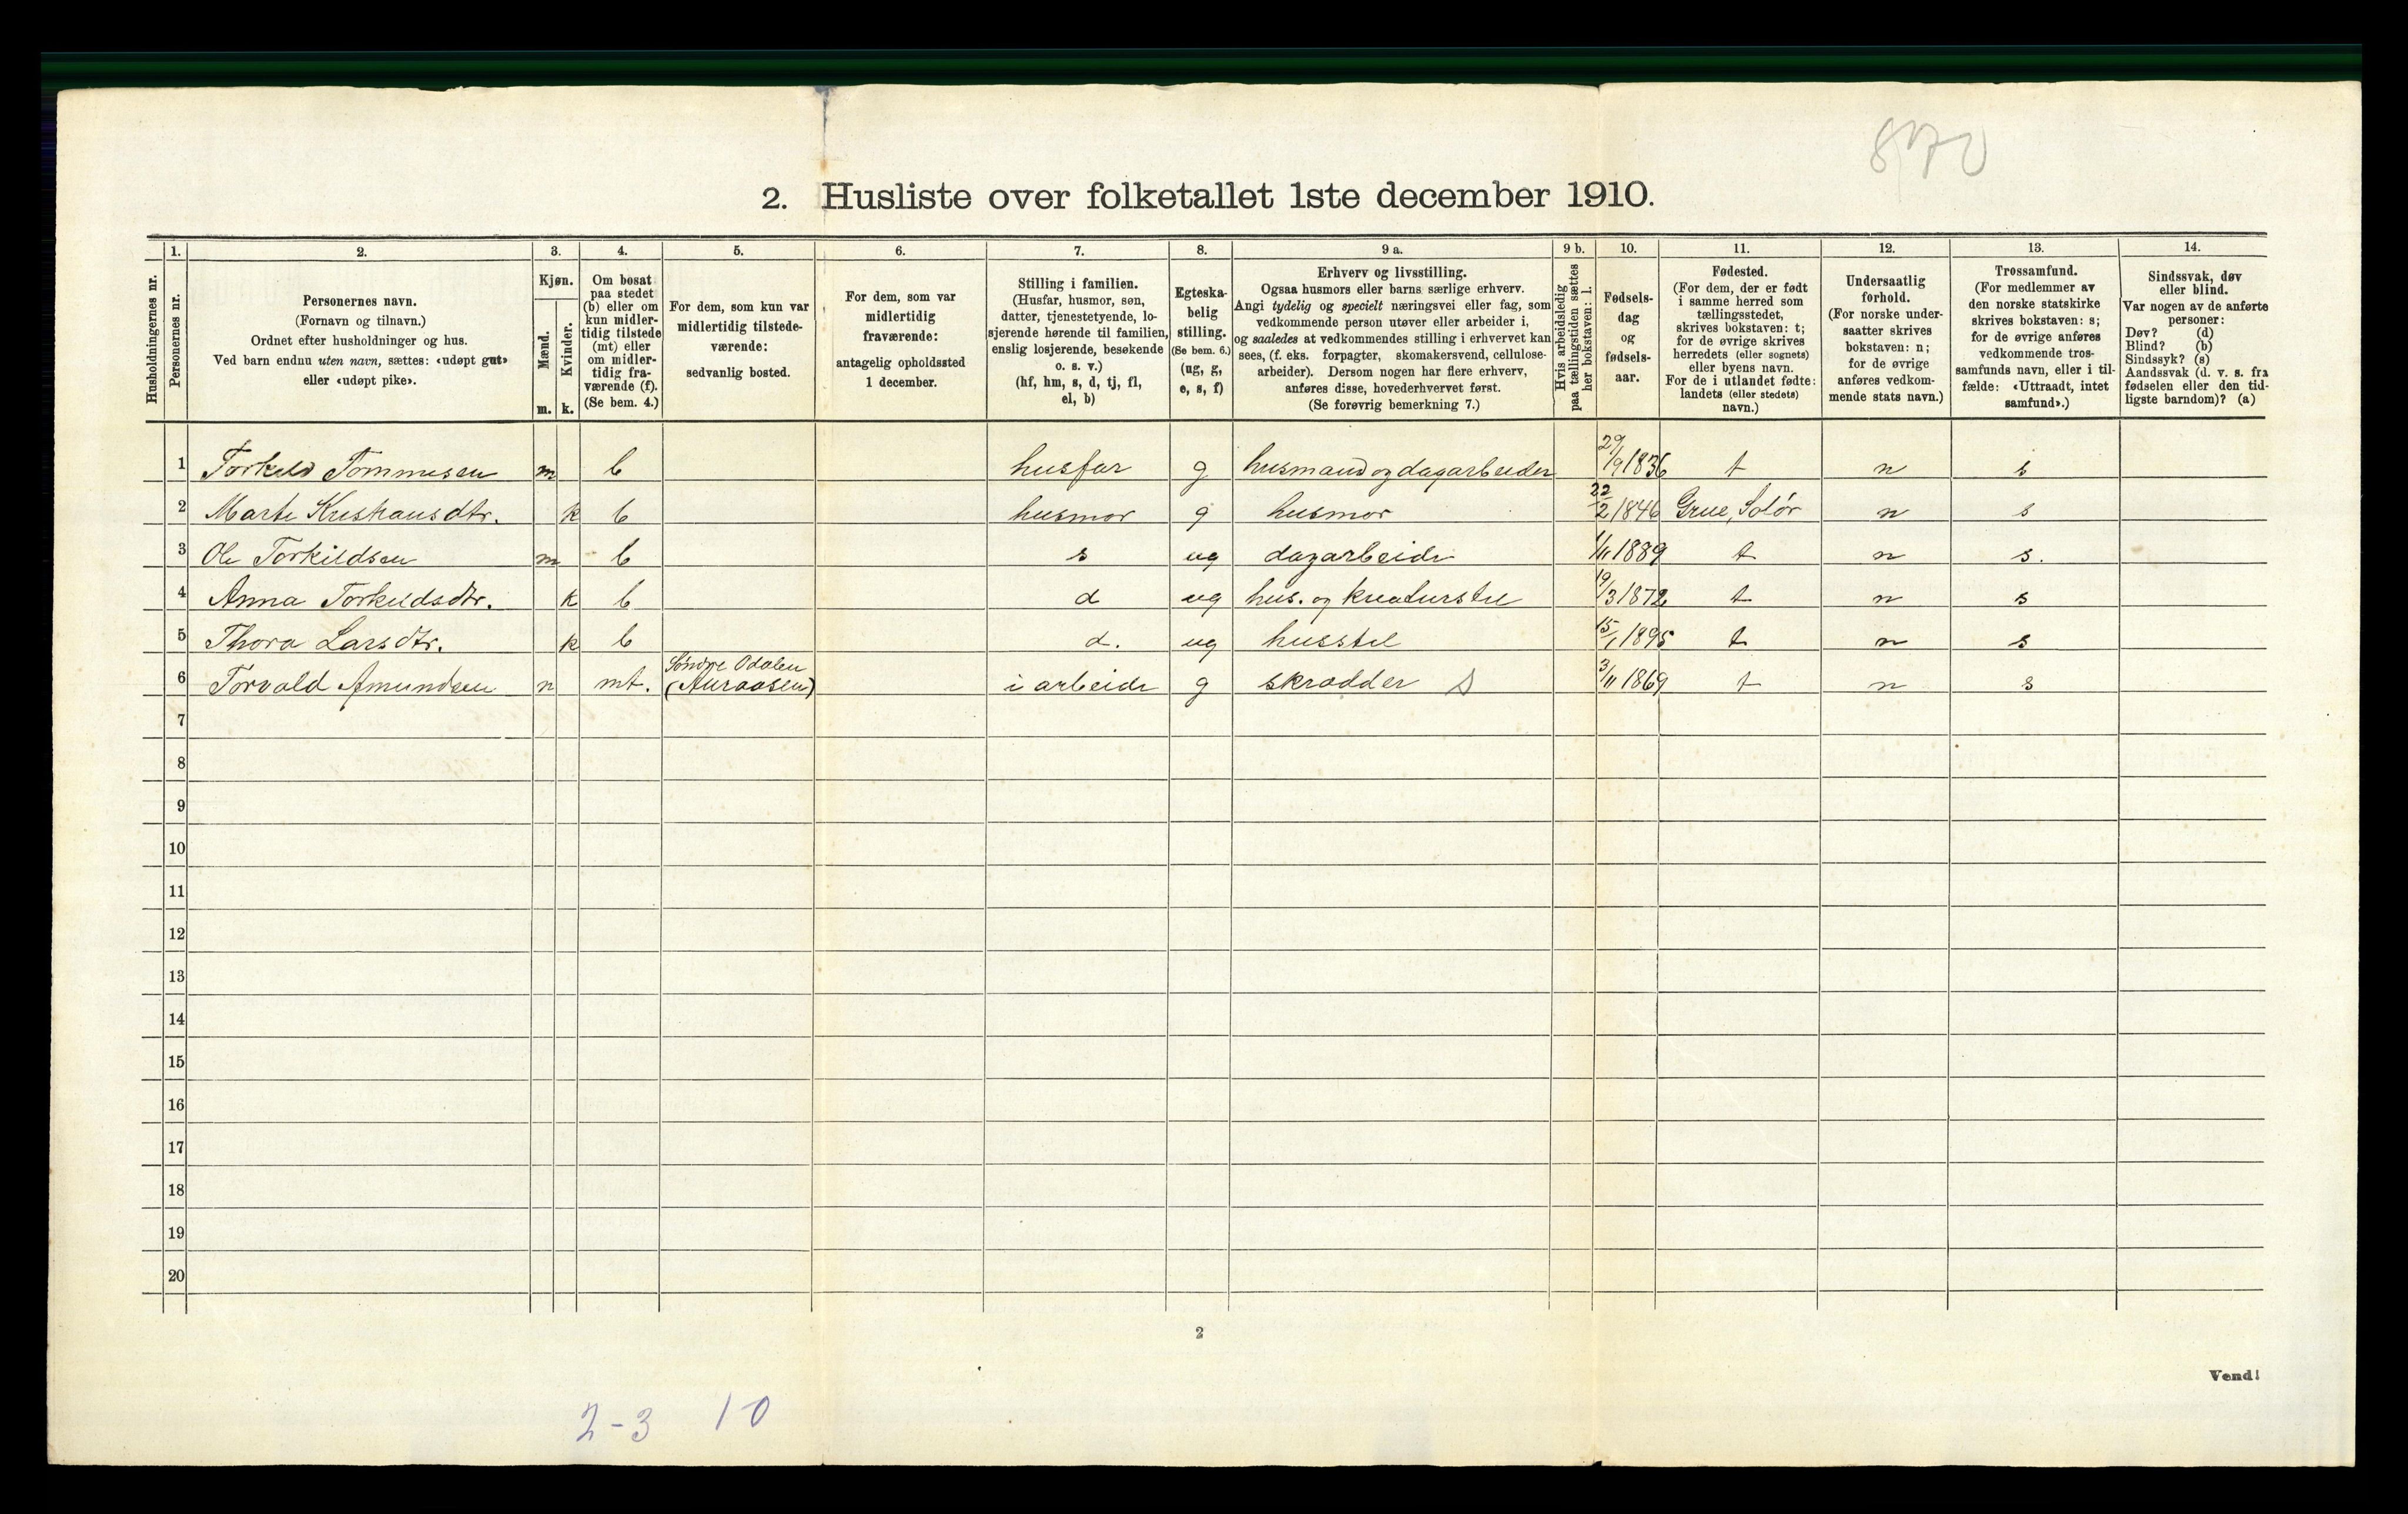 870
2. Husliste over folketallet 1ste december 1910.
1. 2. 3. 4. 5. 6. 7. 8. 9 a. 9 b. 10. 11. 12. 13. 14.
Husholdningernes nr.
Personernes nr.
Personernes navn.
(Fornavn og tilnavn.)
Ordnet efter husholdninger og hus.
Ved barn endnu uten navn, sættes: «udøpt gut»
eller «udøpt pike».
Kjøn.
Mænd.
Kvinder.
m. k.
Om bosat
paa stedet
(b) eller om
kun midler-
tidig tilstede
(mt) eller
om midler-
tidig fra-
værende (f).
(Se bem. 4.)
For dem, som kun var
midlertidig tilstede-
værende:
sedvanlig bosted.
For dem, som var
midlertidig
fraværende:
antagelig opholdssted
1 december.
Stilling i familien.
(Husfar, husmor, søn,
datter, tjenestetyende, lo-
sjerende hørende til familien,
enslig losjerende, besøkende
o. s. v.)
(hf, hm, s, d, tj, fl,
el, b)
Egteska-
belig
stilling.
(Se bem. 6.)
(ug, g,
e, s, f)
Erhverv og livsstilling.
Ogsaa husmors eller barns særlige erhverv.
Angi tydelig og specielt næringsvei eller fag, som
vedkommende person utøver eller arbeider i,
og saaledes at vedkommendes stilling i erhvervet kan
sees, (f. eks. forpagter, skomakersvend, cellulose-
arbeider). Dersom nogen har flere erhverv,
anføres disse, hovederhvervet først.
(Se forøvrig bemerkning 7.)
Hvis arbeidsledig
paa tællingstiden sættes
her bokstaven: l.
Fødsels-
dag
og
fødsels-
aar.
Fødested.
(For dem, der er født
i samme herred som
tællingsstedet,
skrives bokstaven: t;
for de øvrige skrives
herredets (eller sognets)
eller byens navn.
For de i utlandet fødte:
landets (eller stedets)
navn.)
Undersaatlig
forhold.
(For norske under-
saatter skrives
bokstaven: n;
for de øvrige
anføres vedkom-
mende stats navn.)
Trossamfund.
(For medlemmer av
den norske statskirke
skrives bokstaven: s;
for de øvrige anføres
vedkommende tros-
samfunds navn, eller i til-
fælde: «Uttraadt, intet
samfund».)
Sindssvak, døv
eller blind.
Var nogen av de anførte
personer:
Døv? (d)
Blind? (b)
Sindssyk? (s)
Aandssvak (d. v. s. fra
fødselen eller den tid-
ligste barndom)? (a)
1 Torkild Tommesen m b husfar g husmand og dagarbeider 29/9 1836 t n s
2 Marte Kristiansdtr. k b husmor g husmor 22/2 1846 Grue, Solør n s
3 Ole Torkildsen m b s ug dagarbeide 1/11 1889 t n s.
4 Anna Torkildsdtr. k b d ug hus. og kreaturstel 19/3 1872 t n s
5 Thora Larsdtr. k b d. ug husstel 15/1 1895 t n s
6 Torvald Amundsen m mt. Søndre Odalen (Auraasen) i arbeide g skrædder s 3/11 1869 t n s
7
8
9
10
11
12
13
14
15
16
17
18
19
20
2
Vend!
2-3 10